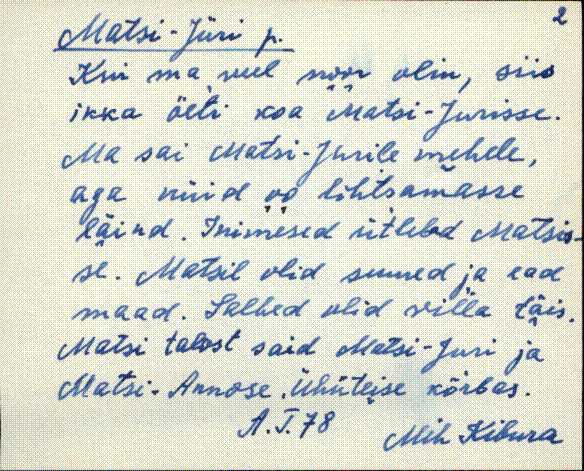 2
Matsi-Jüri p.
Kui ma veel noor olin, siis
ikka öeti koa Matsi-Jurisse.
Ma sai Matsi-Jurile mehele,
aga nüid oo lihtsamasse
läind. Inimesed ütlebad Matsis-
se. Matsil olid suured ja ead
maad. Salved olid villa täis.
Matsi talost said Matsi-Juri ja
Matsi-Annose. Ühüteise kõrbas.
A. T. 78
Mih Kibura